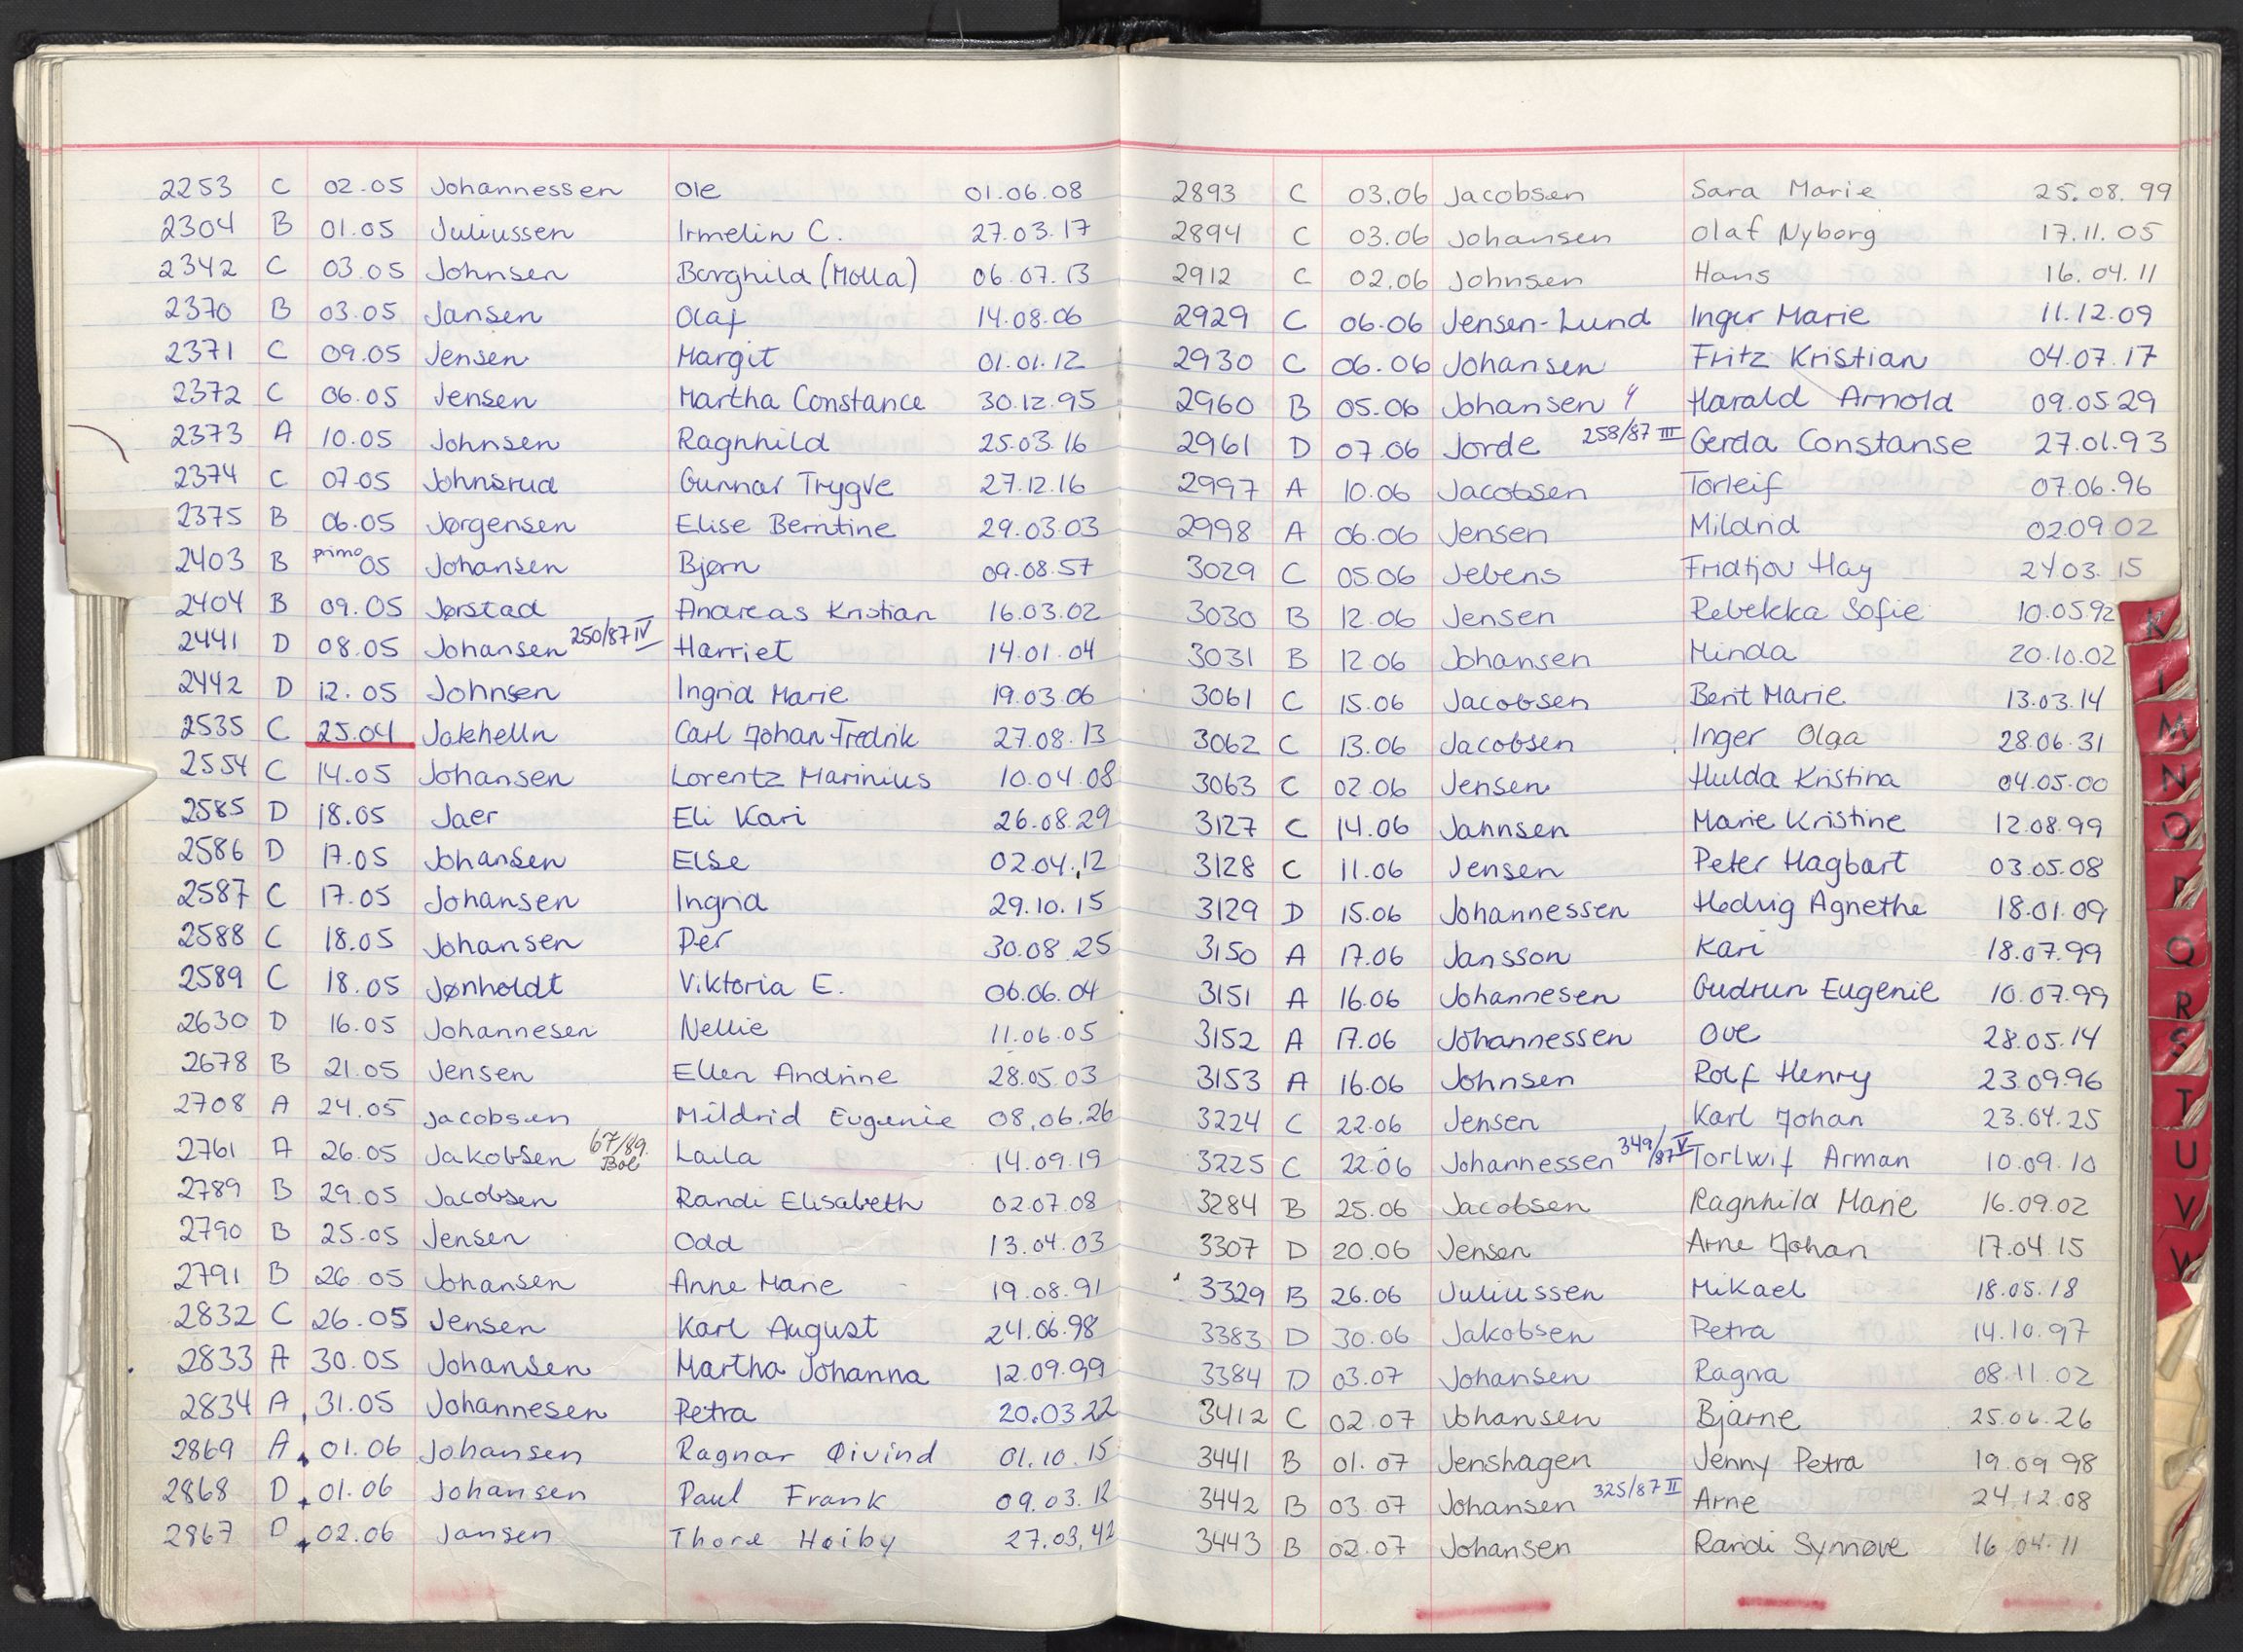 2253 C 02.05 Johannessen Ole 01.06.08
2304 B 01.05 Juliussen Irmelin C. 27.03.17
2342 C 03.05 Johnsen Borghild (Molla) 06.07.13
2370 B 03.05 Jansen Olaf 14.08.06
2371 C 09.05 Jensen Margit 01.01.12
2372 C 06.05 Jensen Martha Constance 30.12.95
2373 A 10.05 Johnsen Ragnhild 25.03.16
2374 C 07.05 Johnsrud Gunnar Trygve 27.12.16
2375 B 06.05 Jørgensen Elise Berntine 29.03.03
2403 B primo 05 Johansen Bjørn 09.08.57
2404 B 09.05 Jørstad Andreas Kristian 16.03.02
2441 D 08.05 Johansen 250/87 IV Harriet 14.01.04
2442 D 12.05 Johnsen Ingrid Marie 19.03.06
2535 C 25.04 Jakhelln Carl Johan Fredrik 27.08.13
2554 C 14.05 Johansen Lorentz Marinius 10.04.08
2585 D 18.05 Jaer Eli Kari 26.08.29
2586 D 17.05 Johansen Else 02.04.12
2587 C 17.05 Johansen Ingrid 29.10.15
2588 C 18.05 Johansen Per 30.08.25
2589 C 18.05 Jønholdt Viktoria E. 06.06.04
2630 D 16.05 Johannesen Nellie 11.06.05
2678 B 21.05 Jensen Ellen Andrine 28.05.03
2708 A 24.05 Jacobsen Mildrid Eugenie 08.06.26
2761 A 26.05 Jakobsen 67/89. Bol Laila 14.09.19
2789 B 29.05 Jacobsen Randi Elisabeth 02.07.08
2790 B 25.05 Jensen Odd 13.04.03
2791 B 26.05 Johansen Anne Marie 19.08.91
2832 C 26.05 Jensen Karl August 24.06.98
2833 A 30.05 Johansen Martha Johanna 12.09.99
2834 A 31.05 Johannesen Petra 20.03 22
2869 A 01.06 Johansen Ragnar Øivind 01.10.15
2868 D 01.06 Johansen Paul Frank 09.03.12
2867 D 02.06 Jansen Thore Høiby 27.03.42
2893 C 03.06 Jacobsen Sara Marie 25.08.99
2894 C 03.06 Johansen Olaf Nyborg 17.11.05
2912 C 02.06 Johnsen Hans 16.04.11
2929 C 06.06 Jensen-Lund Inger Marie 11.12.09
2930 C 06.06 Johansen Fritz Kristian 04.07.17
2960 B 05.06 Johansen Harald Arnold 09.05 29
2961 D 07.06 Jorde 258/87 III Gerda Constanse 27.01.93
2997 A 10.06 Jacobsen Torleif 07.06.96
2998 A 06.06 Jensen Mildrid 02.09.02
3029 C 05.06 Jebens Fridtjov Hay 24.03.15
3030 B 12.06 Jensen Rebekka Sofie 10.05.92
3031 B 12.06 Johansen Minda 20.10.02
3061 C 15.06 Jacobsen Berit Marie 13.03.14
3062 C 13.06 Jacobsen Inger Olga 28.06.31
3063 C 02.06 Jensen Hulda Kristina 04.05.00
3127 C 14.06 Jahnsen Marie Kristine 12.08.99
3128 C 11.06 Jensen Peter Hagbart 03.05.08
3129 D 15.06 Johannessen Hedvig Agnethe 18.01.09
3150 A 17.06 Jansson Kari 18.07.99
3151 A 16.06 Johannesen Gudrun Eugenie 10.07.99
3152 A 17.06 Johannessen Ove 28.05.14
3153 A 16.06 Johnsen Rolf Henry 23.09.96
3224 C 22.06 Jensen Karl Johan 23.04.25
3225 C 22.06 Johannessen 349/87 V Torlwif Arman 10.09.10
3284 B 25.06 Jacobsen Ragnhild Marie 16.09.02
3307 D 20.06 Jensen Arne Johan 17.04.15
3329 B 26.06 Juliussen Mikael 18.05.18
3383 D 30.06 Jakobsen Petra 14.10.97
3384 D 03.07 Johansen Ragna 08.11.02
3412 C 02.07 Johansen Bjarne 25.06.26
3441 B 01.07 Jenshagen Jenny Petra 19.09 98
3442 B 03.07 Johansen 325/87 II Arne 24.12.08
3443 B 02.07 Johansen Randi Synnøve 16 04.11
K
L
M
N
O
P
Q
R
S
T
U
V
W